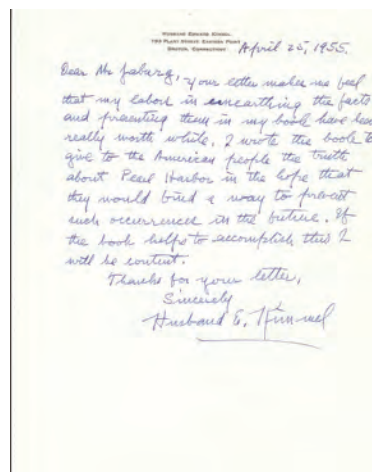 HUSBAND EDWARD KIMMEL
GROTON, CONNECTICUT
April 25, 1955.
Dear Mr Jaburg, your letter makes me feel
that my labors in unearthing the facts
and presenting them in my book have been
really worth while. I wrote the book to
give to the American people the truth
about Pearl Harbor in the hope that
they would find a way to prevent
such occurrences in the future. If
the book helps to accomplish this I
will be content.
Thanks for your letter,
Sincerely
Husband E. Kimmel